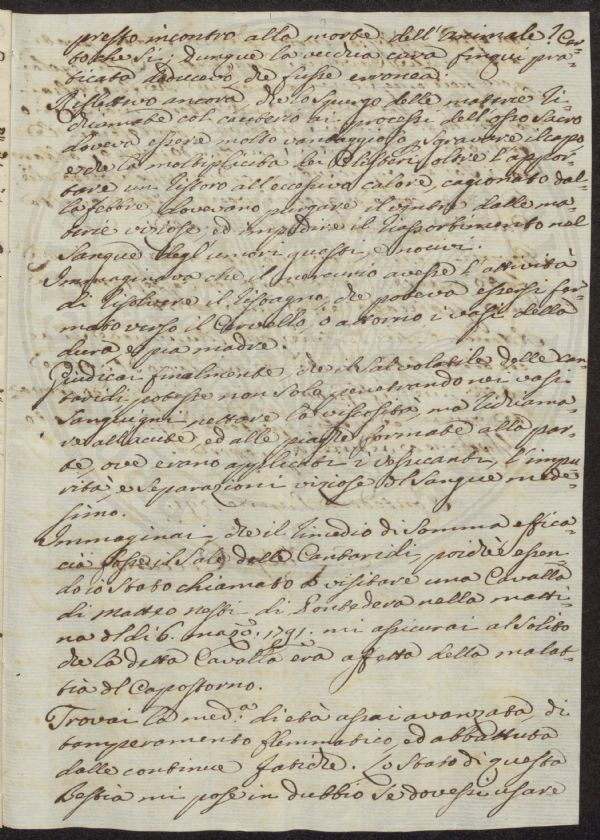 presto incontro alla morte dell'Animale? Cer-
to che si; dunque la vecchia cura finqui pra-
ticata deducevo che fusse erronea.
Riflettevo ancora, che lo spurgo delle materie ri-
chiamate col cauterio ai processi dell'osso sacro
doveva essere molto vantaggioso, sgravare il capo
e che la moltiplicità dei Clisteri, oltre l'appor-
tare un ristoro all'eccessivo calore, cagionato dal-
la febbre dovevano purgare il ventre dalle ma-
terie viziose, ed impedire il riassorbimento nel
Sangue degl'umori guasti, e nocivi.
Immaginava che il mercurio avesse l'attività
di risolvere il ristagno, che poteva essersi for-
mato verso il Cervello, o attorno i vasi della
dura, e pia madre.
Giudicai finalmente che il Sal volatile delle Can-
taridi potesse non solo penetrando nei vasi
Sanguigni nettare la viscosità, ma richiama-
re alla cute, ed alle piaghe formate alla par-
te, ove erano applicati i vessicanti, l'impu-
rità, e separazioni viziose del Sangue mede-
simo.
Immaginai, che il rimedio di Somma effica-
cia fosse il Sale delle Cantaridi, poichè essen-
do io stato chiamato a visitare una Cavalla
di Matteo Nesti di Pontedera nella matti-
na del dì 6. magg.o 1791. mi assicurai al Solito
che la detta Cavalla era affetta della malat-
tia del Capostorno.
Trovai la med.a di età assai avanzata, di
temperamento flemmatico, ed abbattuta
dalle continue fatiche. Lo stato di questa
Bestia mi pose in dubbio se dovessi usare